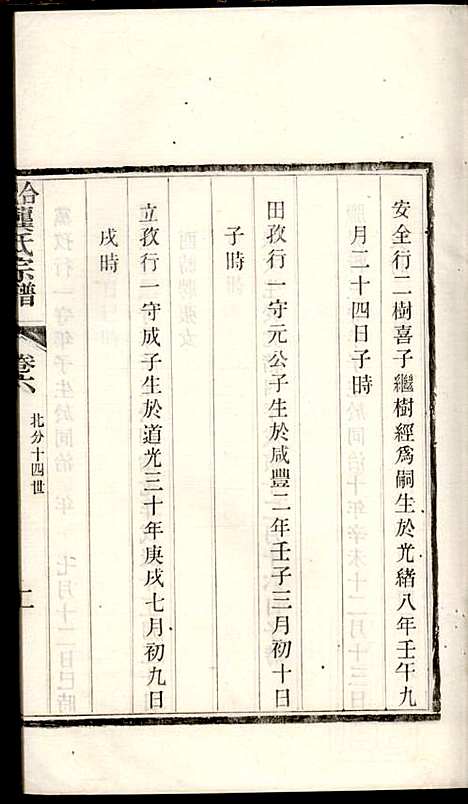 安全行二樹喜子繼樹經爲嗣生於光緒八年壬午九
月二十四日子時
田孜行一守元公子生於咸豐二年壬子三月初十日
子時
立孜行一守成子生於道光三十年庚戌七月初九日
戌時
龔氏宗譜
卷六
北分十四世